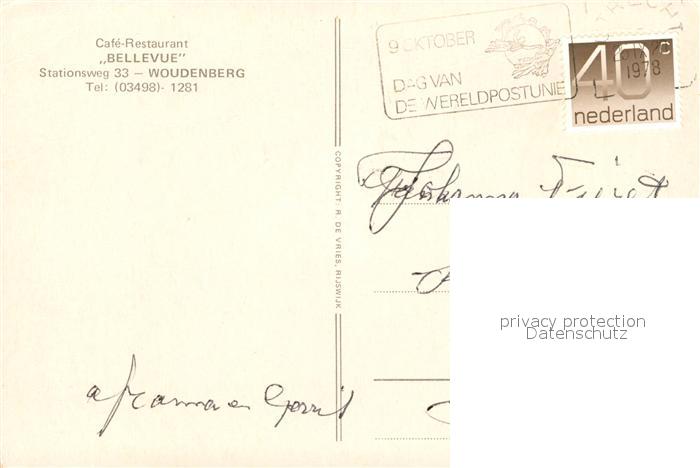 Café-Restaurant
„BELLEVUE"
Stationsweg 33 — WOUDENBERG
Tel: (03498)- 1281
9 OKTOBER
DAG VAN
DE WERELDPOSTUNIE
1978
40c
nederland
COPYRIGHT: R. DE VRIES, RIJSWIJK
Johanna
en Gerrit
privacy protection
Datenschutz